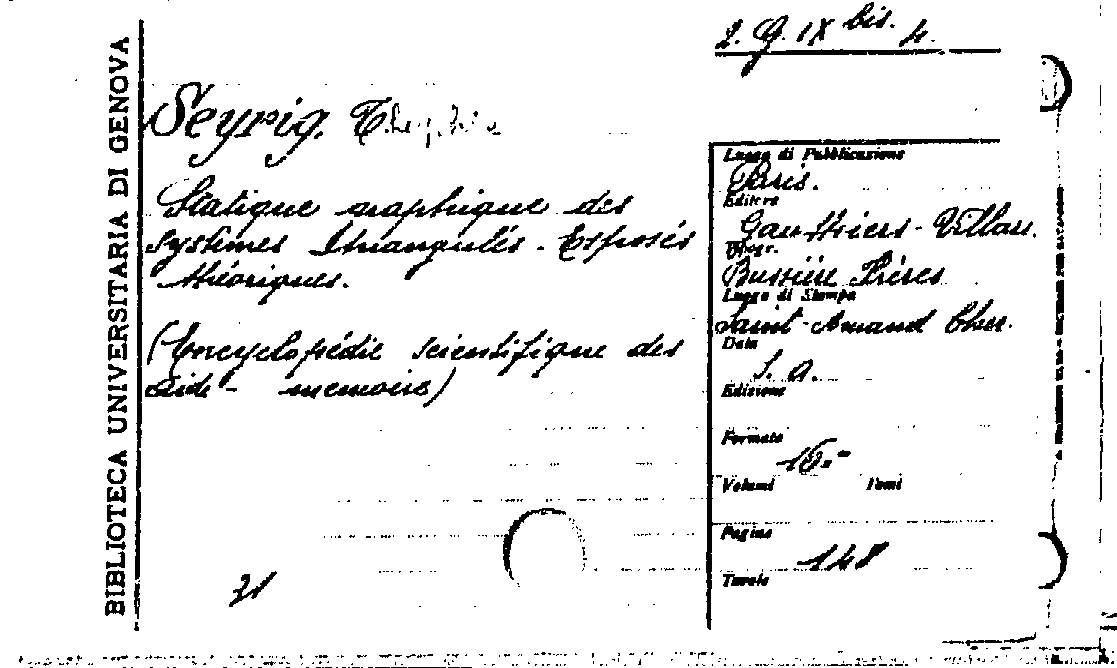 2. G. IX bis. 4.
BIBLIOTECA UNIVERSITARIA DI GENOVA
Seyrig,
Statique graphique des
systèmes triangulés - Exposés
théoriques.
(Encyclopédie scientifique des
aide - memoire)
21
Luogo di Pubblicazione
Paris.
Editore
Gauthiers - Villars.
Tipogr.
Bussière Frères
Luogo di Stampa
Saint-Amand Cher.
Data
S. a.
Edizione
Formato
16.-
Volumi Tomi
Pagine
148
Tavole